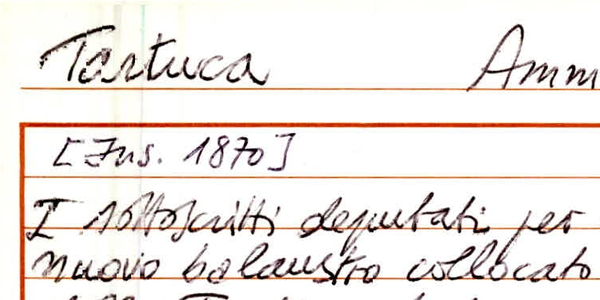 Tartuca Amm
[Ins. 1870]
I sottoscritti deputati per
nuovo balaustro collocato